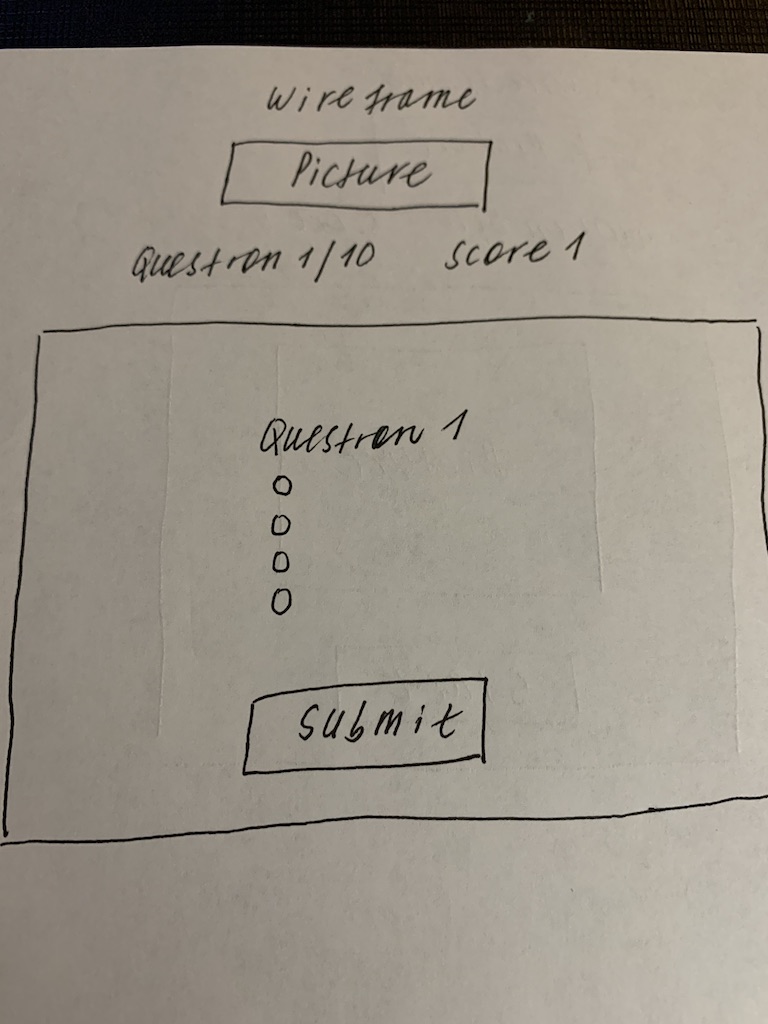 Wireframe
Picture
Question 1/10 score 1
Question 1
Submit